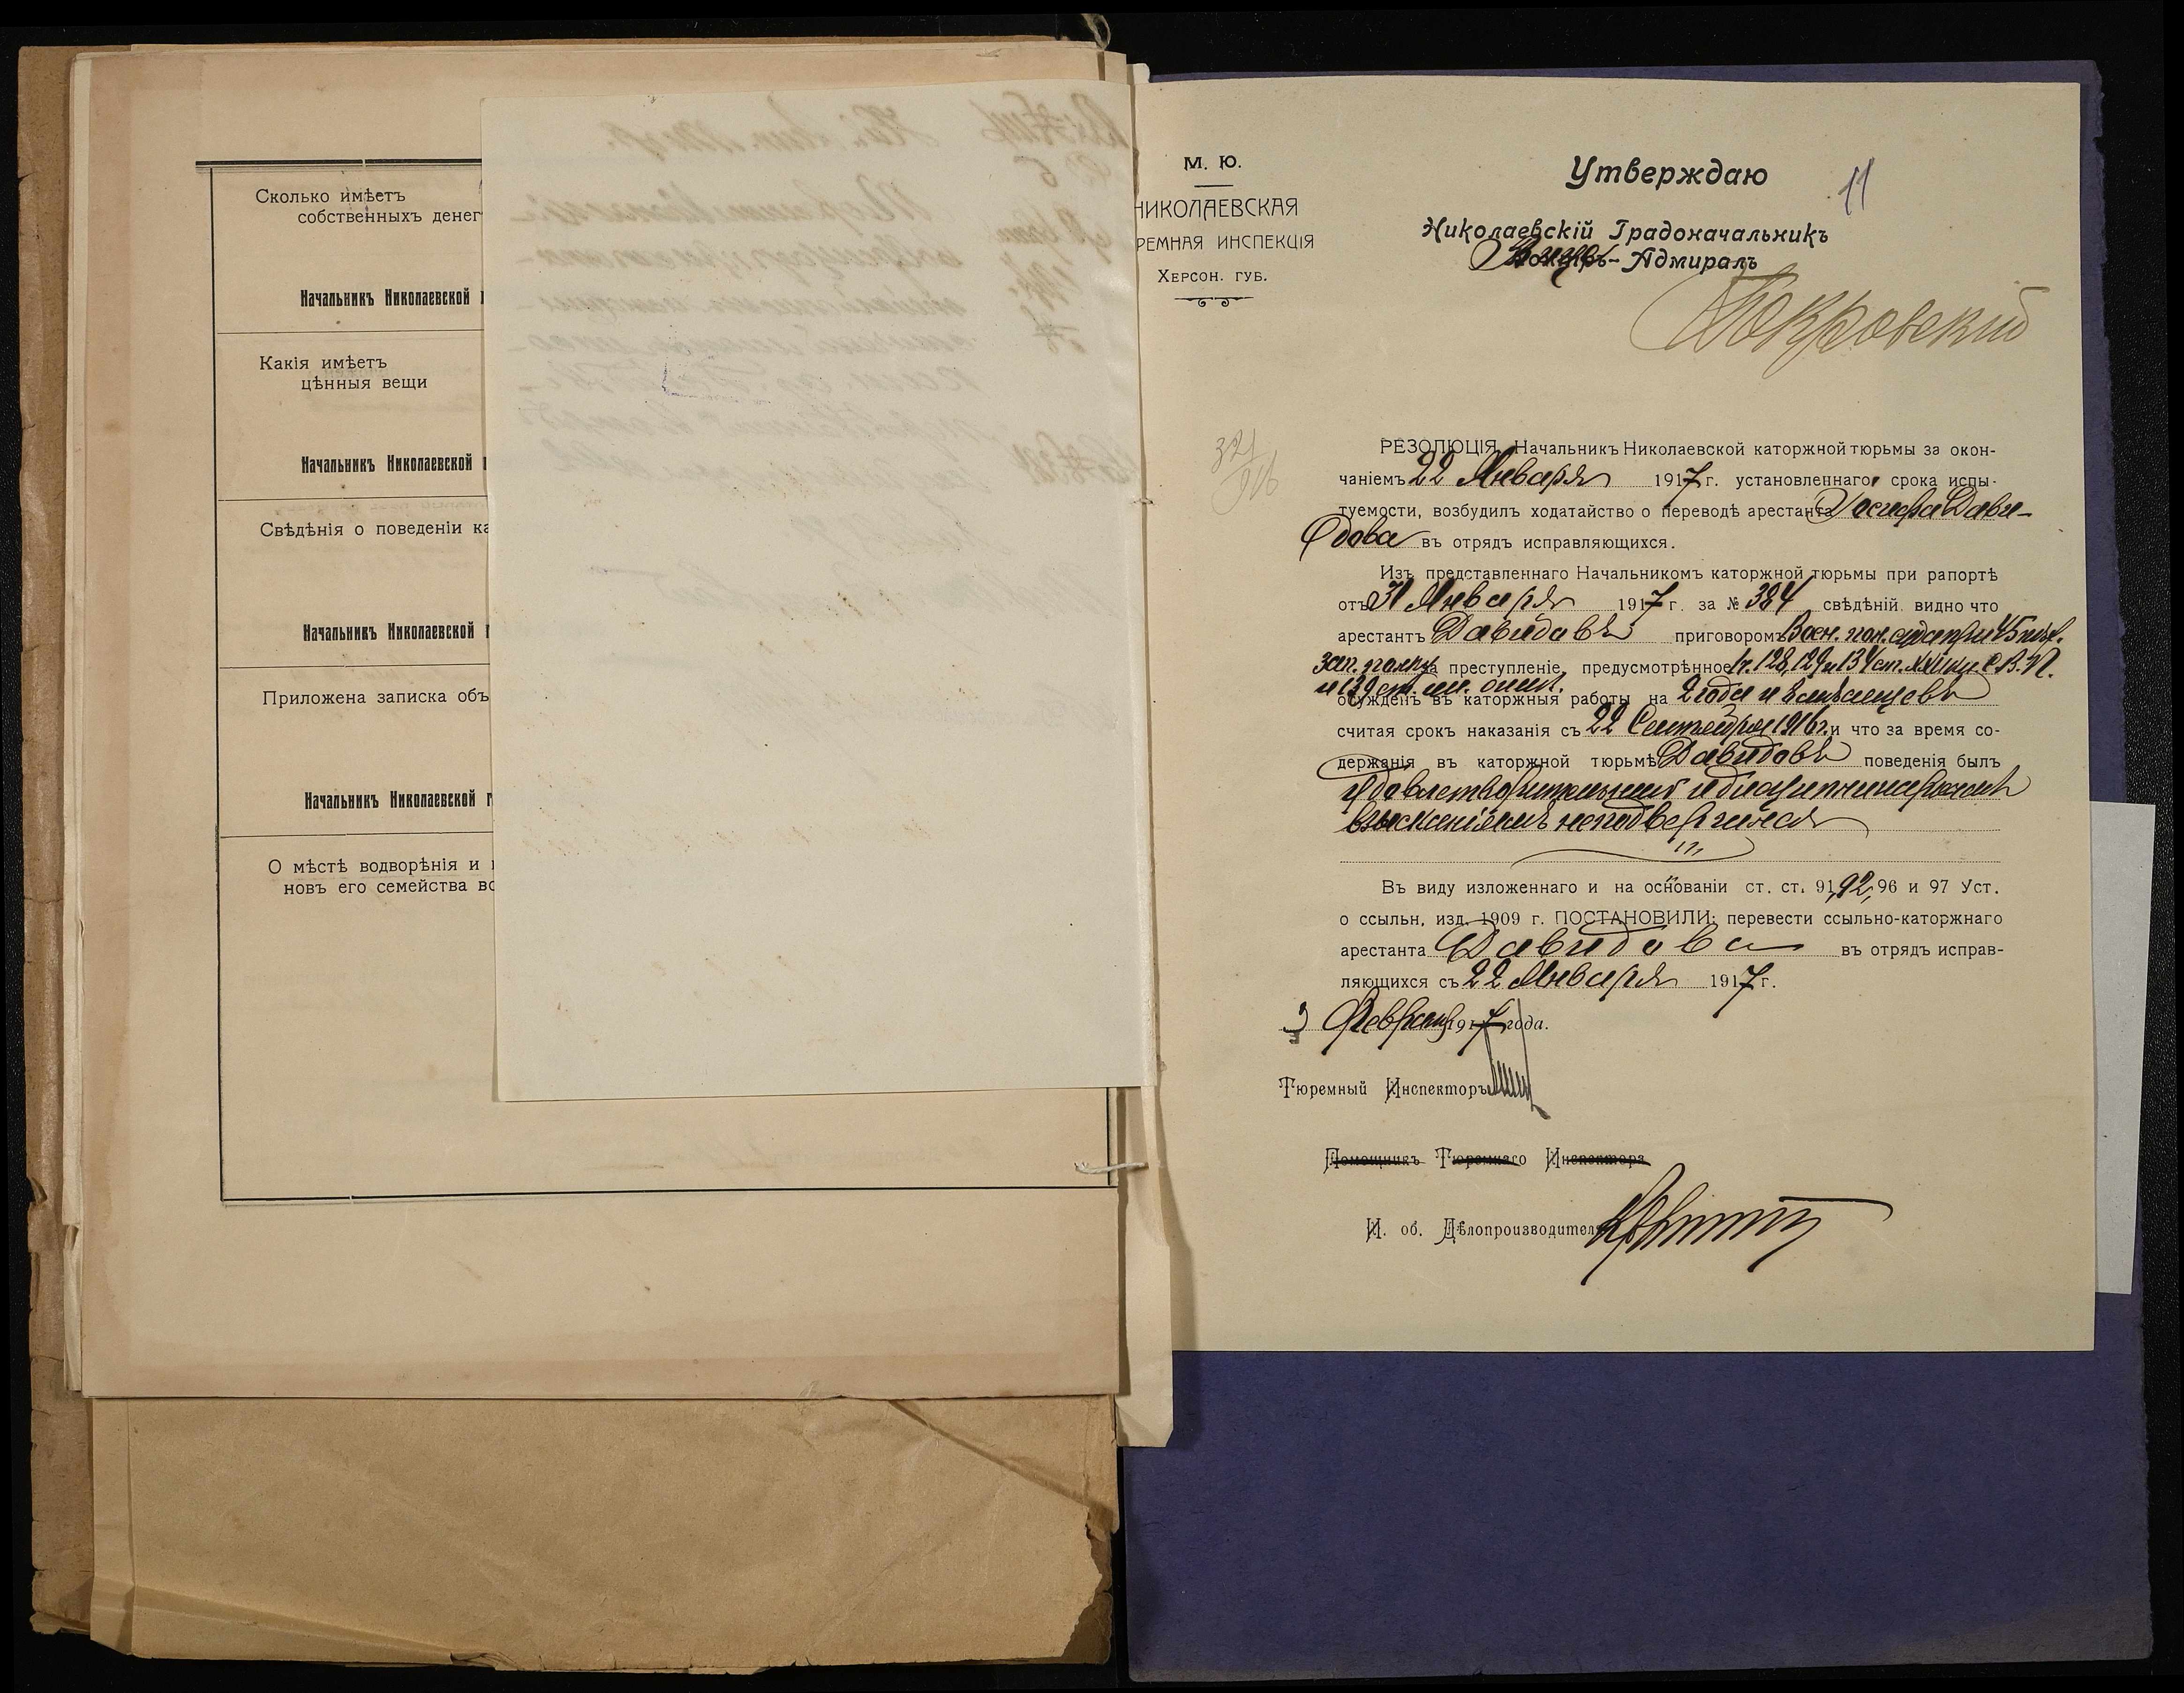 Сколько имѣетъ
собственныхъ денег
Начальникъ Николаевской
Какія имѣетъ
цѣнныя вещи
Начальникъ Николаевской
Свѣдѣнія о поведеніи ка
Начальникъ Николаевской
Приложена записка объ
Начальникъ Николаевской
О мѣстѣ водворѣнія и
новъ его семейства во
М. Ю.
НИКОЛАЕВСКАЯ
РЕМНАЯ ИНСПЕКЦІЯ
ХЕРСОН. ГУБ.
Утверждаю
11
Николаевскій Градоначальникъ
Вице-Адмиралъ
Покровскій
321
916
РЕЗОЛЮЦІЯ, Начальникъ Николаевской каторжной тюрьмы за окон-
чаніемъ 22 Января 1917 г. установленнаго срока испы-
туемости, возбудилъ ходатайство о переводѣ арестанта Іосифа Дави-
дова въ отрядъ исправляющихся.
Изъ представленнаго Начальникомъ каторжной тюрьмы при рапортѣ
отъ 31 Января 1917 г. за № 384 свѣдѣній видно что
арестантъ Давидовъ приговоромъ Воен. пол. суда при 45 пѣх.
зап. полку за преступленіе, предусмотрѣнное 1 ч. 128, 129 и 134 ст. XXII кн. С.В.П.
и 139 ст.
осужденъ въ каторжныя работы на 2 года и 8 мѣсяцевъ
считая срокъ наказанія съ 22 Сентября 1916 г. и что за время со-
держанія въ каторжной тюрьмѣ Давидовъ поведенія былъ
удовлетворительнаго и дисциплинарнымъ
взысканіямъ не подвергался
Въ виду изложеннаго и на основаніи ст. ст. 91, 92, 96 и 97 Уст.
о ссыльн, изд. 1909 г. ПОСТАНОВИЛИ: перевести ссыльно-каторжнаго
арестанта Давидова въ отрядъ исправ-
ляющихся съ 22 Января 1917 г.
3 Февраля 1917 года.
Тюремный Инспекторъ
Помощникъ Тюремнаго Инспектора
И. об. Дѣлопроизводителя